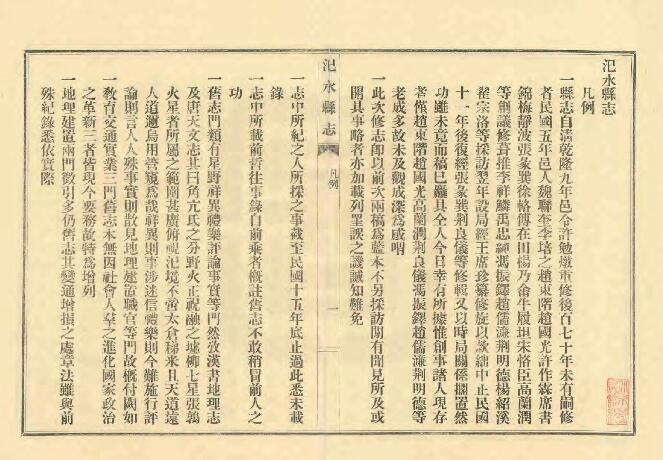 汜水縣志
凡例
一縣志自淸乾隆九年邑令許勉燉重修後百七十年未有嗣修
者民國五年邑人魏聯奎李培之趙東階趙國光許作霖席書
錦梅靜波張彖巽徐輅傅在田楊乃俞牛履垣朱恪臣高蘭潤
等創議修葺推李祥麟禹忠純馮振鐸趙儒濂荆明德楊紹溪
翟宗洛等採訪翌年設局經王席珍纂修旋以款絀中止民國
十一年後復經張彖巽荆良儀等修輯又以時局關係擱置然
功雖未竟而稿已麤具全人今日幸有所據惟創事諸人現存
者僅趙東階趙國光高蘭潤荆良儀馮振鐸趙儒濂荆明德等
老成多故未及觀成深爲感喟
一此次修志即以前次兩稿爲藍本不另採訪間有聞見所及或
開具事略者亦加載列罣誤之譏誠知難免
汜水縣志
凡例
一
一志中所紀之人所採之事截至民國十五年底止過此悉未載
錄
一志中所載前哲往事錄自前乘者槪註舊志不敢稍冒前人之
功
一舊志門類有星野祥異禮樂評論事實等門然攷漢書地理志
及唐天文志其曰角亢氐之分野火正祝融之墟柳七星張鶉
火星者所屬之範圍甚廣俯視汜境不啻太倉稊米且天道遠
人道邇烏用管窺爲哉祥異則事涉迷信禮樂則今難施行評
論則言人人殊事實則散見地理建置職官等門故槪付闕如
一敎育交通實業三門舊志本無因社會人羣之進化國家政治
之革新三者皆現今要務故特爲增列
一地理建置兩門徵引多仍舊志其變通增損之處章法雖與前
殊紀錄悉依實際